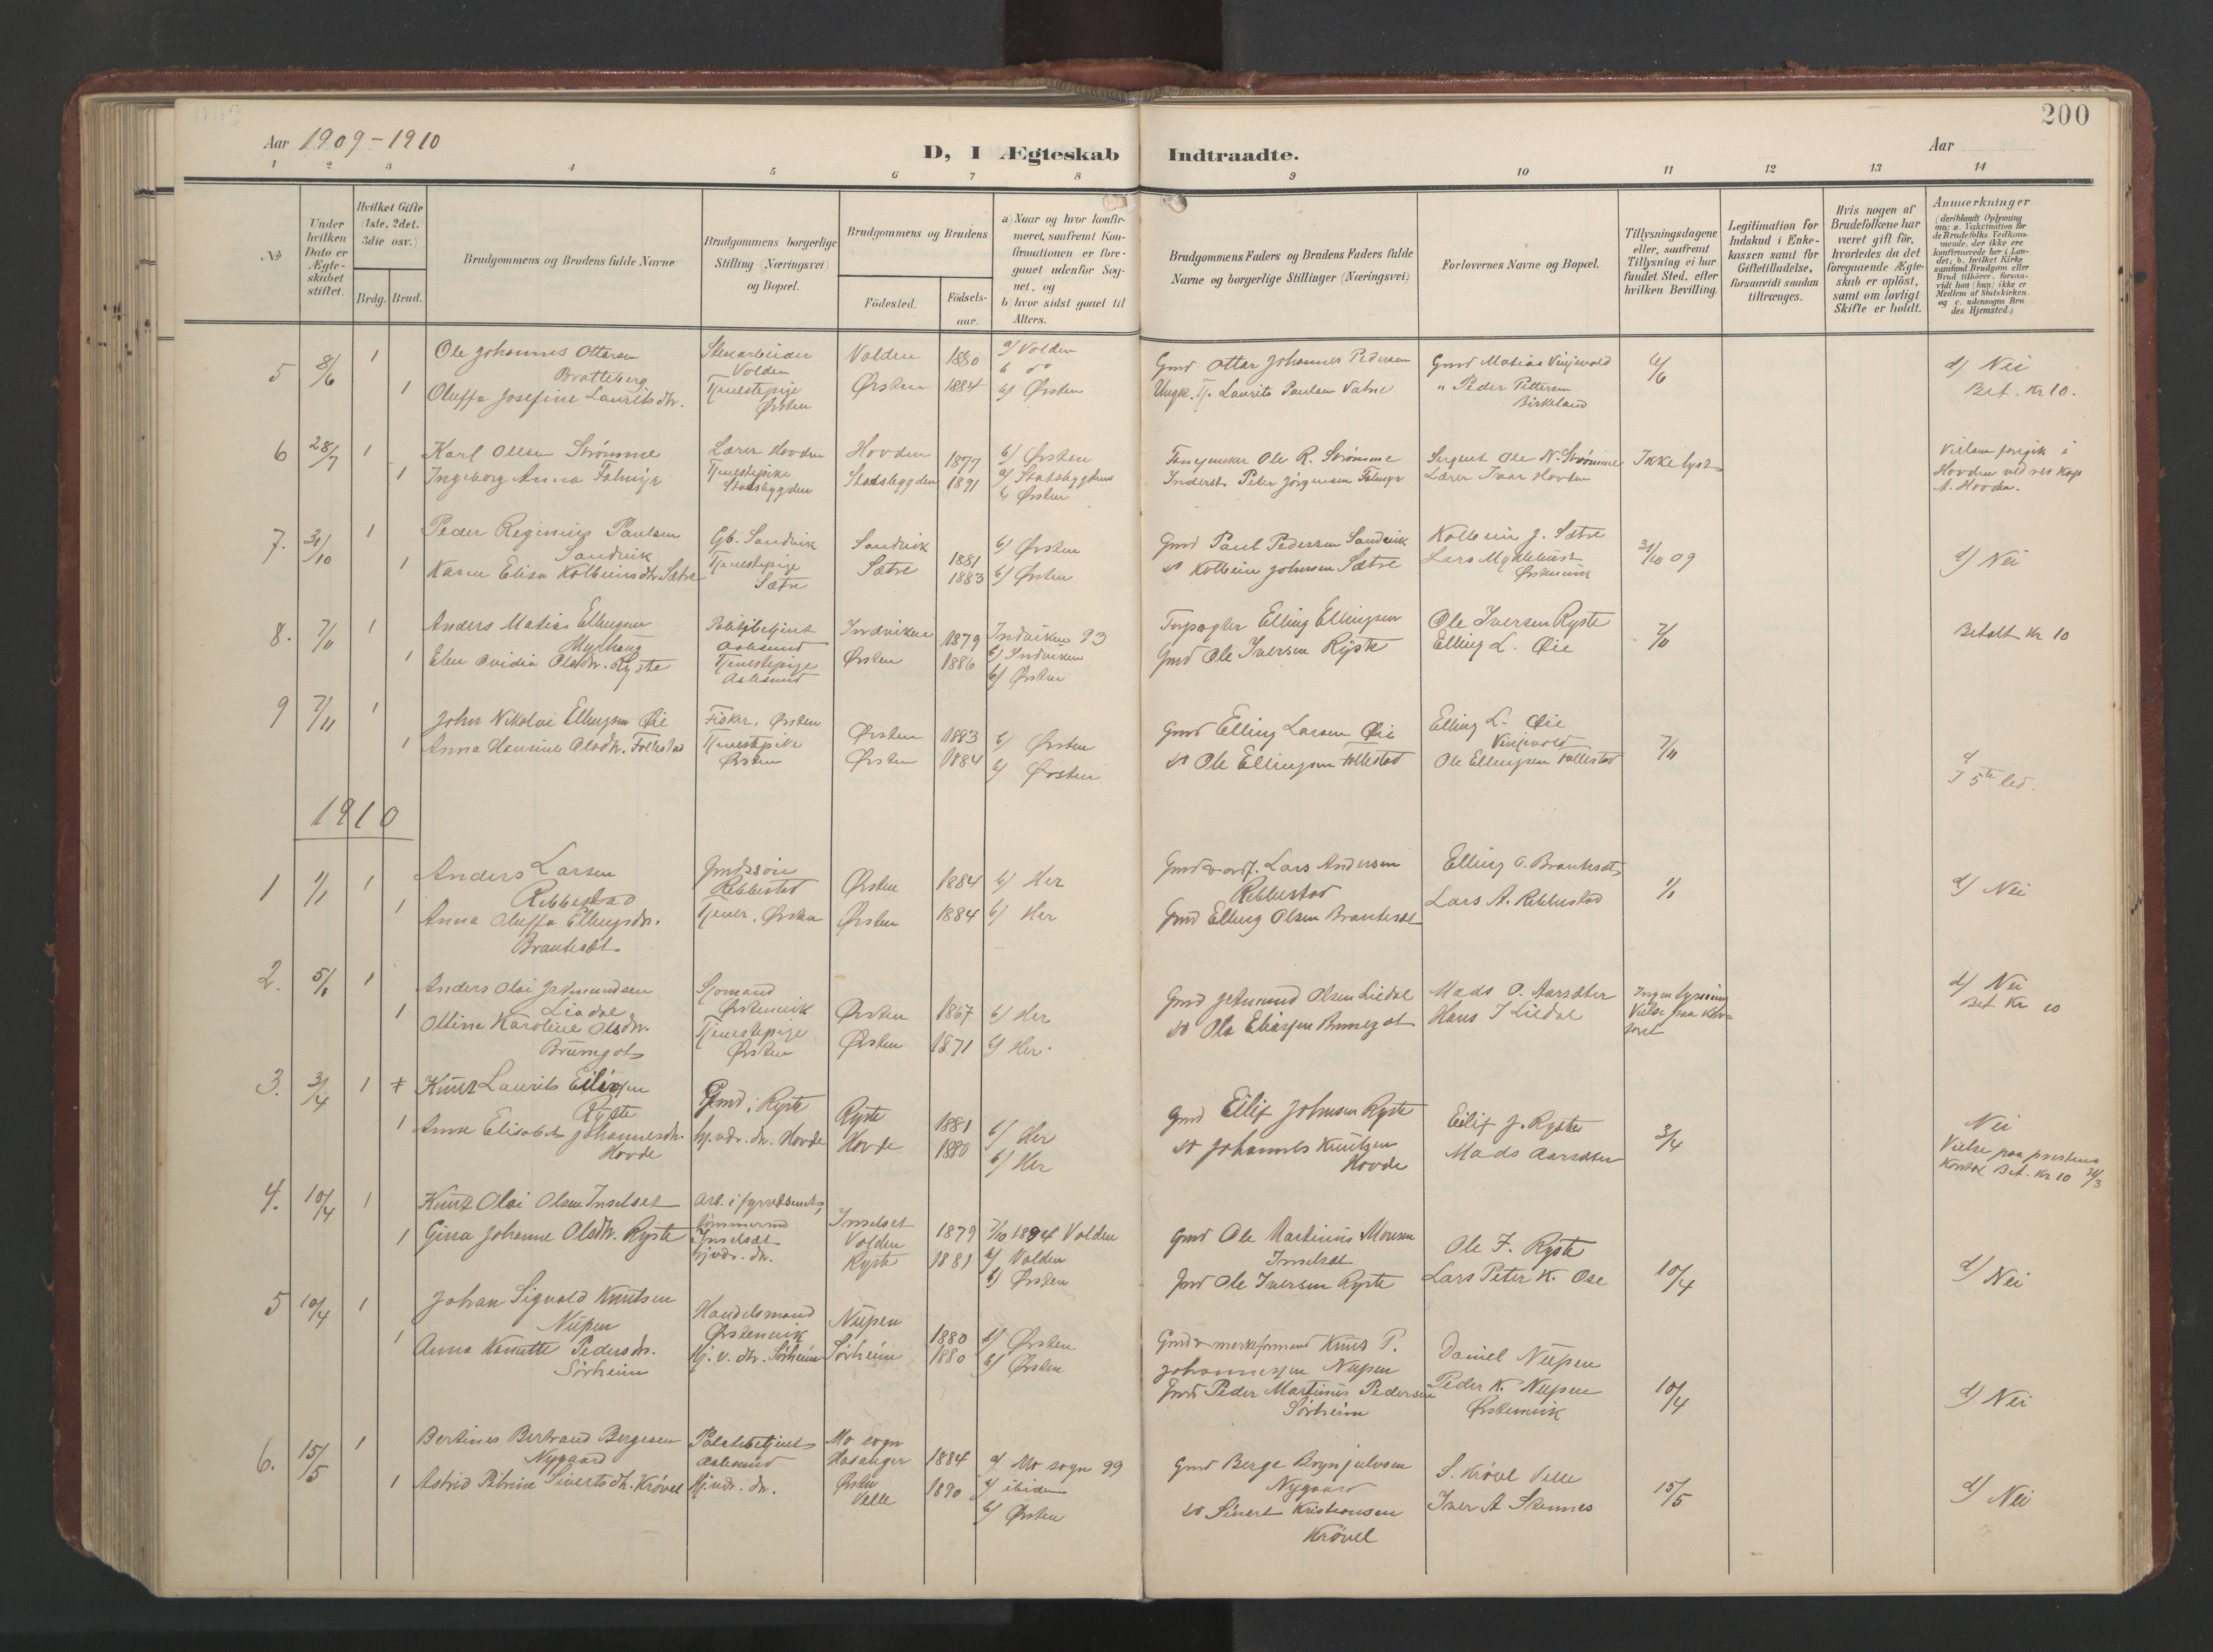 200
Aar 1909-1910
D, I Ægteskab Indtraadte.
Aar
1 2 3 4 5 6 7 8 9 10 11 12 13 14
№
Under hvilken Dato er Ægteskabet stiftet.
Hvilket Gifte (1ste, 2det, 3die osv.)
Brdg. Brud.
Brudgommens og Brudens fulde Navne
Brudgommens borgerlige Stilling (Næringsvei) og Bopæl.
Brudgommens og Brudens
Födested.
Födsels-aar.
a) Naar og hvor konfirmeret, saafremt Konfirmationen er foregaaet udenfor Sognet, og
b) hvor sidst gaaet til Alters.
Brudgommens Faders og Brudens Faders fulde Navne og borgerlige Stillinger (Næringsvei)
Forlovernes Navne og Bopæl.
Tillysningsdagene eller, saafremt Tillysning ei har fundet Sted, efter hvilken Bevilling.
Legitimation for Indskud i Enkekassen samt for Giftetilladelse, forsaavidt saadan tiltrænges.
Hvis nogen af Brudefolkene har været gift för, hvorledes da det foregaaende Ægteskab er oplöst, samt om lovligt Skifte er holdt.
Anmærkninger
5 8/6 1 Ole Johannes Ottersen Stenarbeider Volden 1880 a) Volden Gmd Otter Johannes Pedersen Gmd Matias Vinjevold 6/6 d) Nei
Bratteberg Volden b do
1 Oluffa Josefine Lauritsdtr. Tjenestepige Ørsten 1884 b) Ørsten Ungk. Tj. Laurits Paulsen Vatne " Peder Pettersen Bet. Kr 10.
Ørsten Birkeland
6 28/7 1 Karl Olsen Strømme Lærer Hovden Hovden 1877 b) Ørsten Ole R. Strømme Sergent Ole N. Strømme Ikke lyst Vielsen foregik i
1 Ingeborg Anna Tjenestepike Stadsbygden 1891 a) Stadsbygden Inderst Peter Jörgensen Lærer Ivar Hovden Hovden ved res Kap
Stadsbygden b) Ørsten A. Hovden.
7. 31/10 1 Peder Reginius Paulsen Gb. Sandvik Sandvik 1881 b) Ørsten Gmd Paul Pedersen Sandvik Kolbein J. Sætre 31/10 09 d) Nei
Sandvik
1 Karen Elisa Kolbeinsdtr. Sætre Tjenestepige Sætre 1883 b) Ørsten do Kolbein Johnsen Sætre Lars Myklebust
Sætre Ørstenvik
8. 7/11 1 Anders Matias Ellingsen Politibetjent Indviken 1879 Indviken 93 Elling Ellingsen Ole Iversen Ryste 7/11 Betalt Kr 10
Myrhaug Aalesund b) Indviken
1 Elen Ovidia Olsdtr. Ryste Tjenestepige Ørsten 1886 b) Ørsten Gmd Ole Iversen Ryste Elling L. Øie
Aalesund
9 7/11 1 John Nikolai Ellingsen Øie Fisker, Ørsten Ørsten 1883 b) Ørsten Gmd Elling Larsen Øie Elling L. Øie 7/11 d
Vinjevold
1 Anna Hansine Olsdtr. Follestad Tjenestepike Ørsten 1884 b) Ørsten do Ole Ellingsen Follestad Ole Ellingsen Follestad I 5te led.
Ørsten
1910
1 1/1 1 Anders Larsen Gmdssøn Ørsten 1884 b) Her Lars Andersen Elling O. Brauteset 1/1 d) Nei
Rebbestad Rebbestad Rebbestad
1 Anna Oluffa Ellingsdtr. Tjener, Ørsten Ørsten 1884 b) Her Gmd Elling Olsen Brauteset Lars A. Rebbestad
Brauteset
2. 5/1 1 Anders Olai Jetmundsen Sjomand Ørsten 1867 b) Her Gmd Jetmund Olsen Liedal Mads O. Aarsæter Ingen lysning d) Nei
Liadal Ørstenvik Vielse paa kon- bet Kr 10
1 Ottine Karoline Olsdtr. Tjenestepige Ørsten 1871 b) Her. do Ole Eliassen Brungot Hans J Liedal toret
Brungot Ørsten
3. 3/4 1 Knut Laurits Eilifsen Gmd i Ryste Ryste 1881 b) Her Gmd Eilif Johnsen Ryste Eilif J. Ryste 3/4 Nei
Ryste
1 Anne Elisabet Johannesdtr. hj.vdr. dtr. Hovde Hovde 1880 b) Her do Johannes Knutsen Mads Aarsæter Vielse paa prestens
Hovde Hovde kontor Bet. Kr 10 31/3
4. 10/4 1 Knut Olai Olsen Inselset Arb. i Inselset 1879 7/10 1894 Volden Gmd Ole Martinus Monsen Ole I. Ryste 10/4 d) Nei
Inselset Volden b) Volden Inselset
1 Gina Johanne Olsdtr. Ryste hj.vdr. dtr. Ryste 1881 b) Ørsten Gmd Ole Iversen Ryste Lars Peter K. Ose
5 10/4 1 Johan Sigvald Knutsen Handelsmand Nupen 1880 b) Ørsten Knut P. Daniel Nupen 10/4 d) Nei
Nupen Ørstenvik Johannessen Nupen
1 Anna Kanutte Pedersdtr. Hj. v. dtr. Sörheim Sörheim 1880 b) Ørsten Gmd Peder Martinus Pedersen Peder K. Nupen
Sörheim Sörheim Ørstenvik
6. 15/5 1 Bertines Bertrand Bergesen Politibetjent Mo sogn 1884 a) Mo sogn 99 Gmd Berge Brynjulvsen S. Krövel Velle 15/5 d) Nei
Nygaard Aalesund Hardanger b) ibidem Nygaard
1 Astrid Petrine Sivertsdtr. Krövel Hj.vdr. dtr. Ørsten 1890 b) Ørsten do Sivert Kristiansen Iver A Skinnes
Velle Krövel